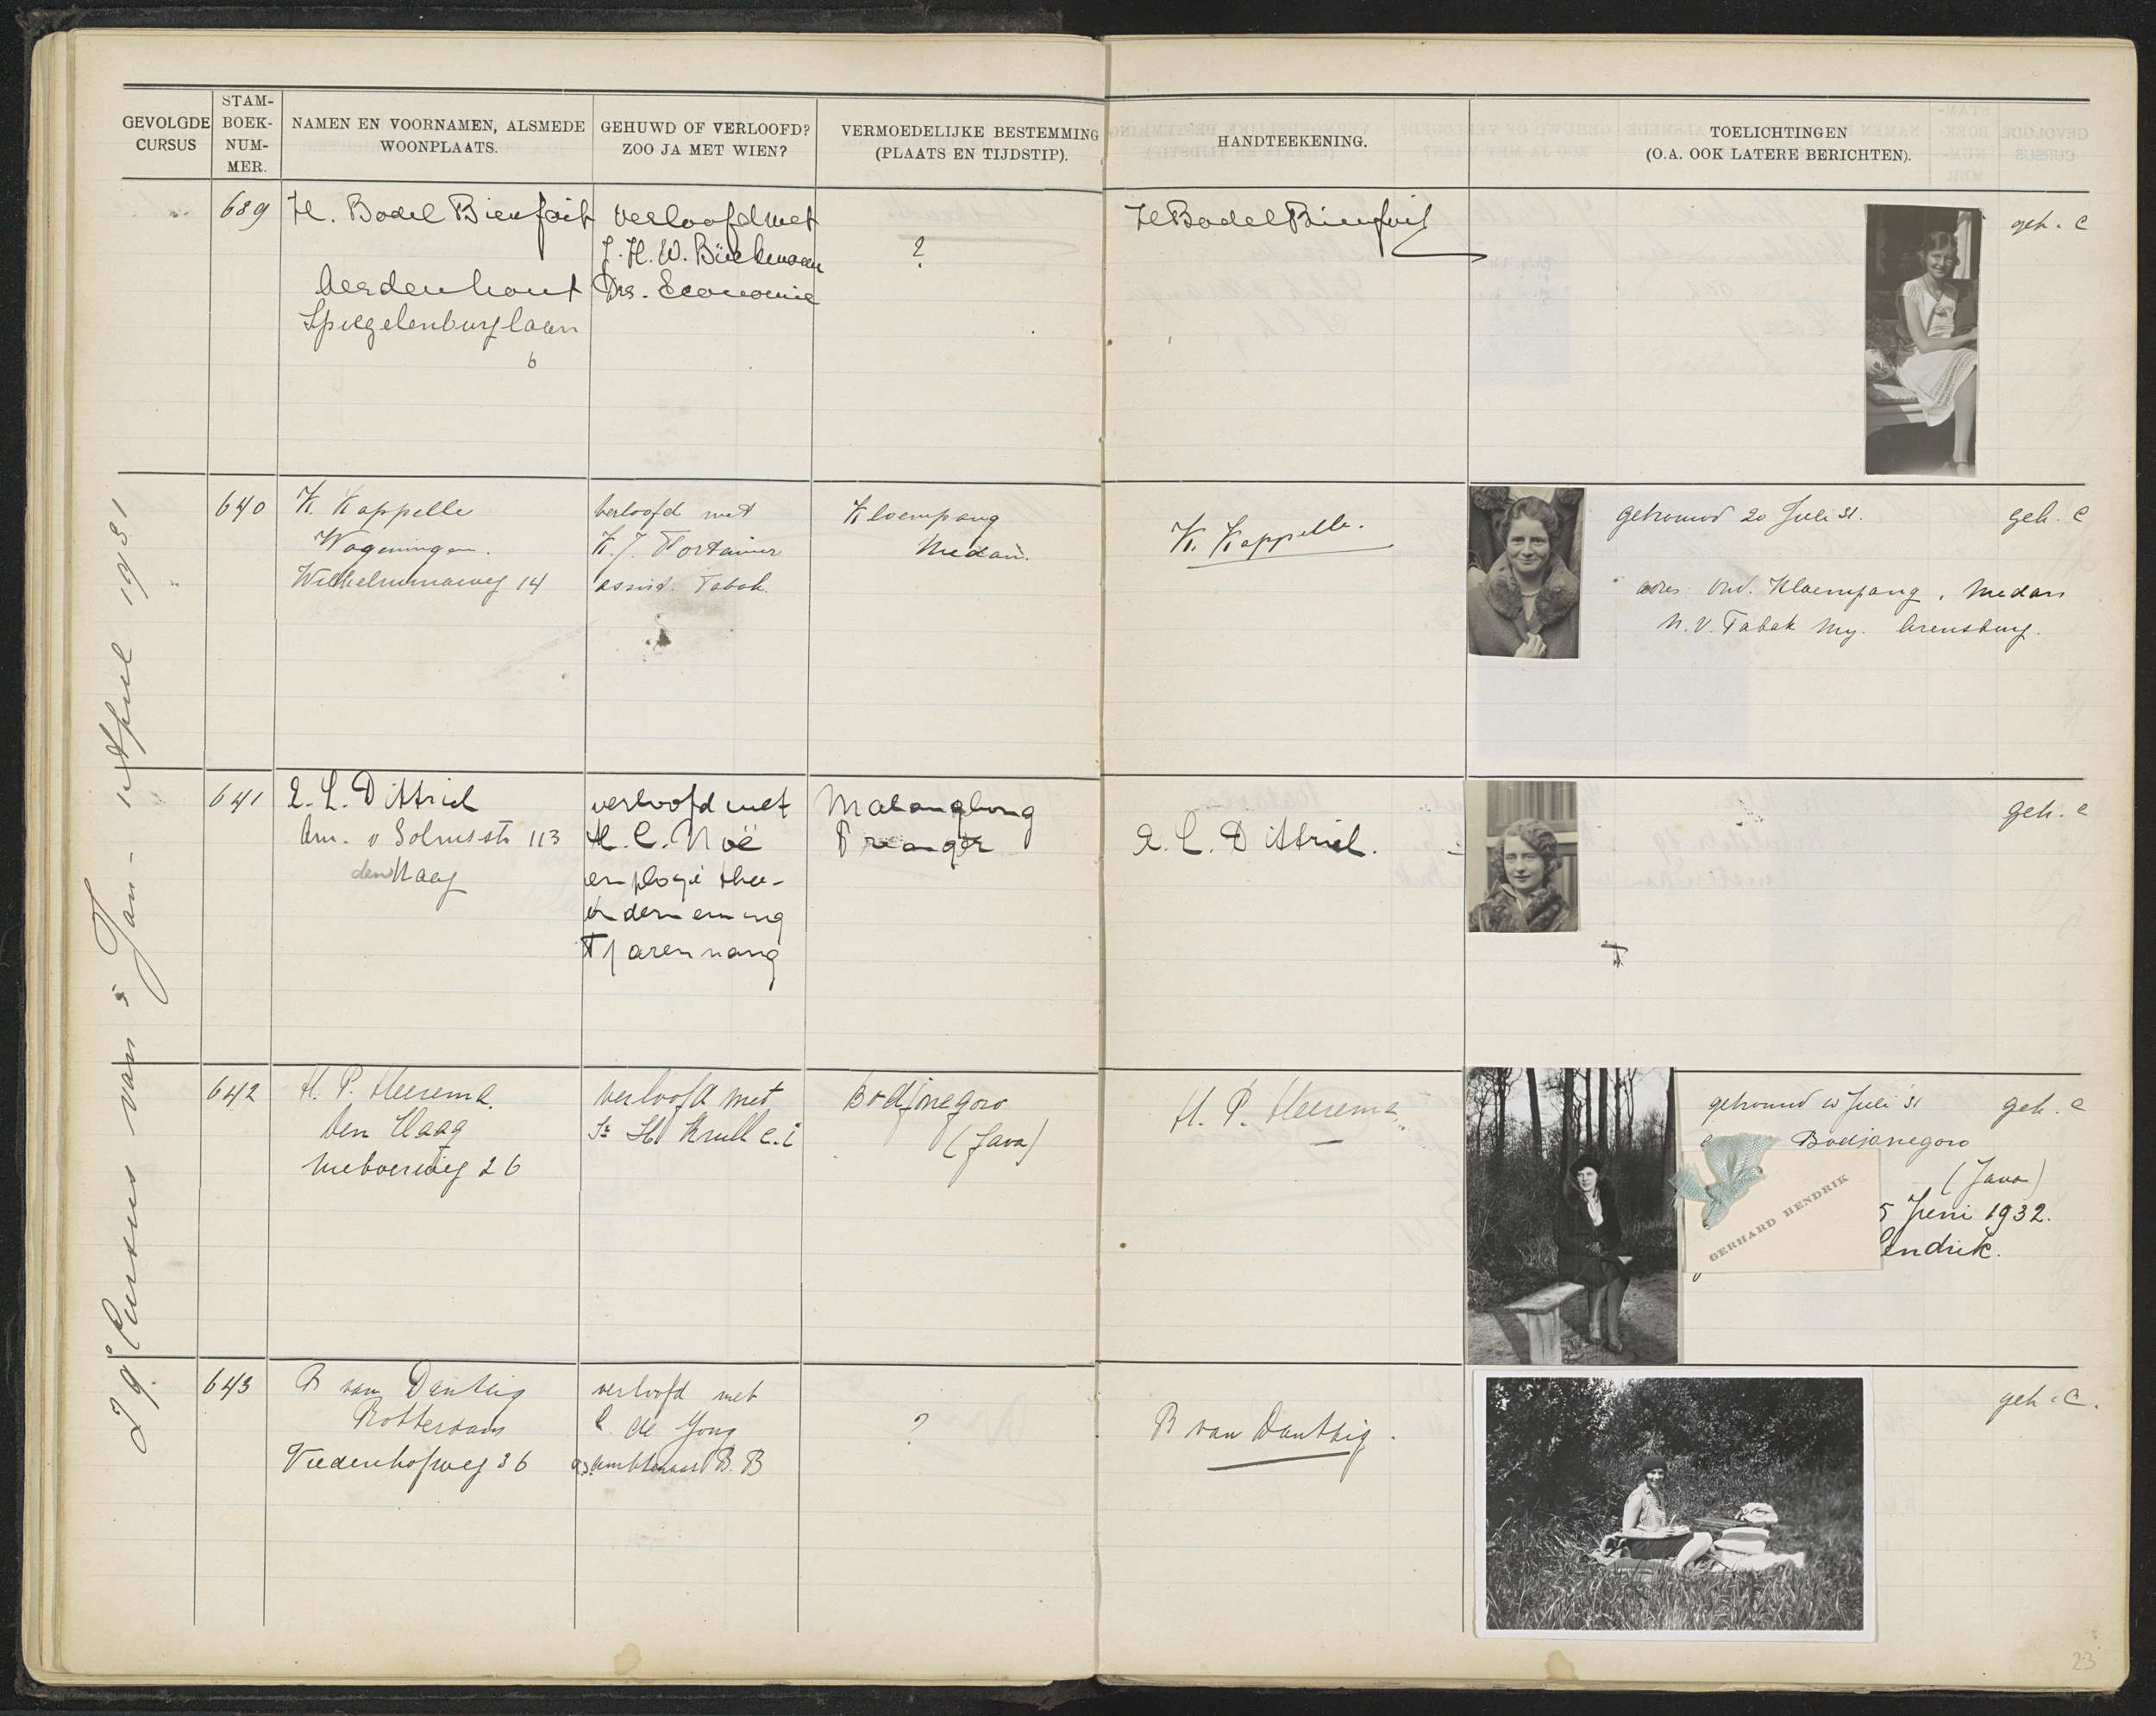 GEVOLGDE CURSUS
STAM-BOEK-NUM-MER.
NAMEN EN VOORNAMEN, ALSMEDE WOONPLAATS.
GEHUWD OF VERLOOFD? ZOO JA MET WIEN?
VERMOEDELIJKE BESTEMMING (PLAATS EN TIJDSTIP).
HANDTEEKENING.
TOELICHTINGEN (O.A. OOK LATERE BERICHTEN).
29e Cursus van 5 Jan - April 1931
639
H. Bodel Bienfait
Aerdenhout
Spiegelenburglaan
6
verloofd met
J. H. W.
Drs. Economie
?
H Bodel Bienfait
geh. C
640
K. Kappelle
Wageningen.
Wilhelminaweg 14
verloofd met
K. J.
assist. Tabak.
Kloempang
Medan.
K. Kappelle.
getrouwd 20 Juli 31.
geh. C
adres Ond. Kloempang, Medan
N.V. Tabak My. Arensburg.
641
A. L. Dittrich
Am. v Solmsstr 113
den Haag
verloofd met
H. C. Noë
employé thee-
onderneming
Tjarennang
Malangbong
Preanger
A. L. Dittrich.
geh. C
642
H. P. Heerema.
Den Haag
Nieboerweg 26
verloofd met
Ir H. Krull c.i
Bodjonegoro
(Java)
H. P. Heerema
getrouwd Juli 31
geh. C
Bodjonegoro
(Java)
5 Juni 1932.
endrik.
GERHARD HENDRIK
643
R van Dantzig
Rotterdam
Vredenhofweg 36
verloofd met
de Jong
as. ambtenaar B. B
?
R van Dantzig.
geh. C.
23